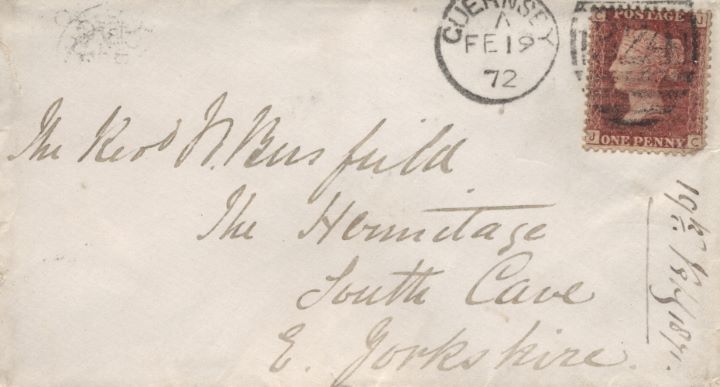 GUERNSEY
A
FE 19
72
C J
POSTAGE
J C
ONE PENNY
The Revd W. Busfield
The Hermitage
South Cave
E. Yorkshire.